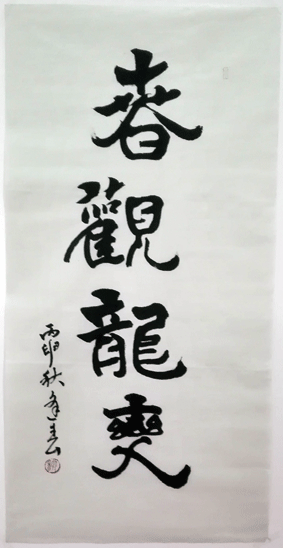 春觀龍變
丙申秋